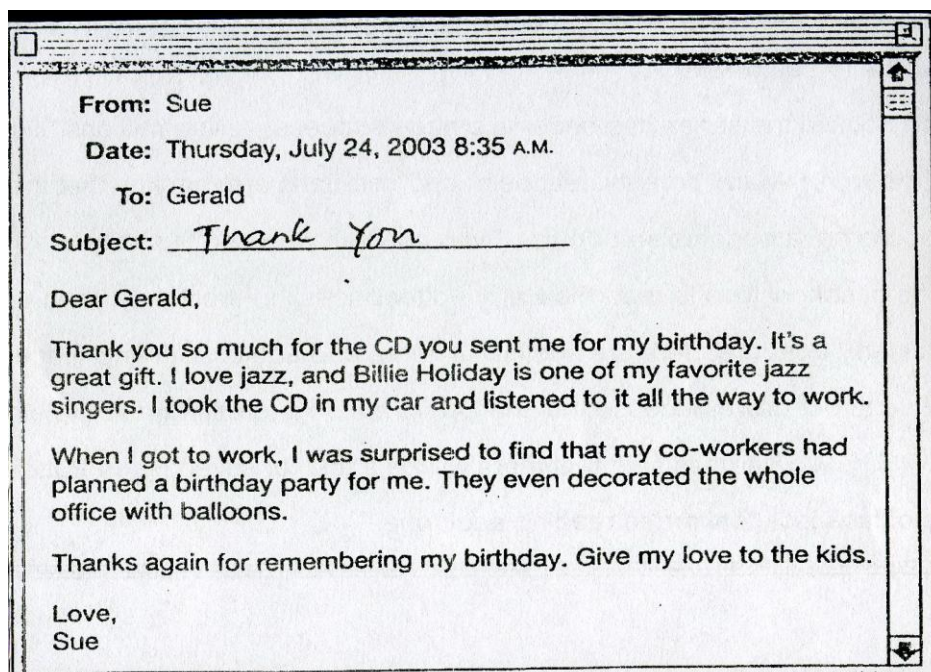 From: Sue
Date: Thursday, July 24, 2003 8:35 A.M.
To: Gerald
Subject: Thank You
Dear Gerald,
Thank you so much for the CD you sent me for my birthday. It's a
great gift. I love jazz, and Billie Holiday is one of my favorite jazz
singers. I took the CD in my car and listened to it all the way to work.
When I got to work, I was surprised to find that my co-workers had
planned a birthday party for me. They even decorated the whole
office with balloons.
Thanks again for remembering my birthday. Give my love to the kids.
Love,
Sue